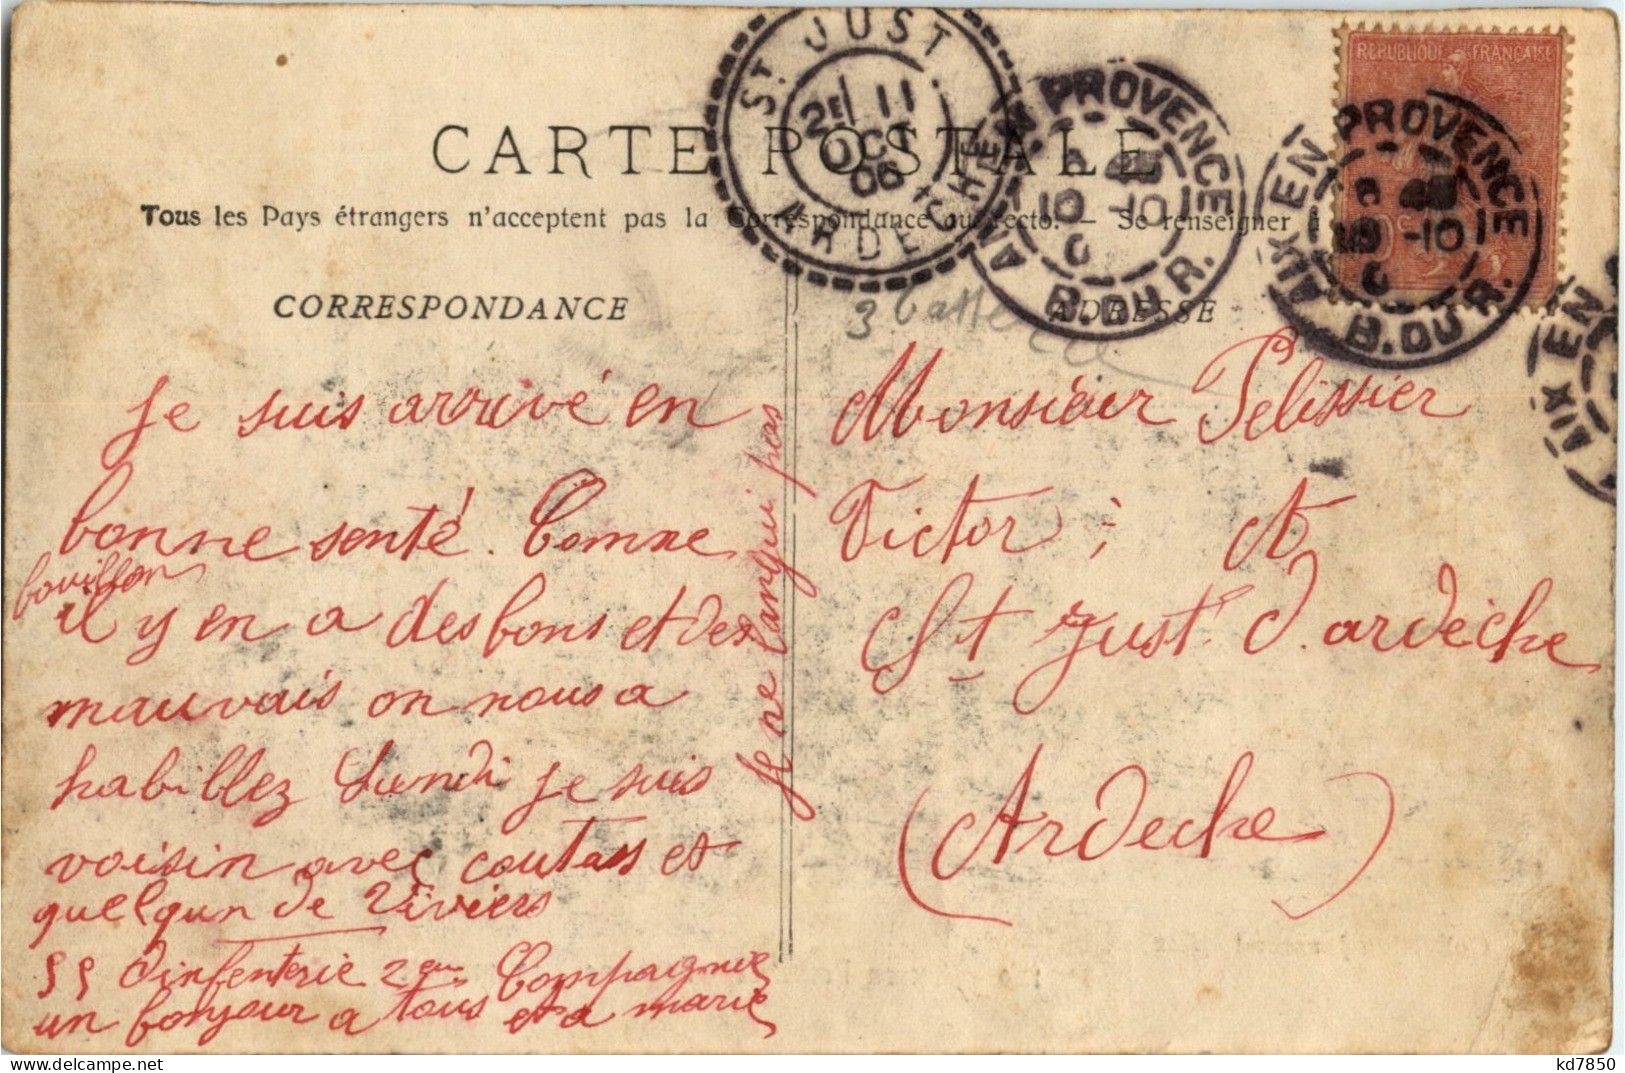 ST JUST
ARDECHE
2E 11
OCT
06
AIX EN PROVENCE
10 -10
B. DU R.
AIX EN PROVENCE
-10
B. DU R.
AIX EN
REPUBLIQUE FRANÇAISE
CARTE POSTALE
Tous les Pays étrangers n'acceptent pas la Correspondance au recto. — Se renseigner à
CORRESPONDANCE
ADRESSE
3
je suis arrivé en
bonne senté. Comme
bouillon
il y en a des bons et des
mauvais on nous a
habillez Lundi je suis
voisin avec coutass et
quelqun de Viviers
55 dinfenterie 2em Compagnie
un bonjour a tous et a marie
je ne langui pas
Monsieur Pelissier
Victor à St
St just d'ardèche
(Ardeche)
kd7850